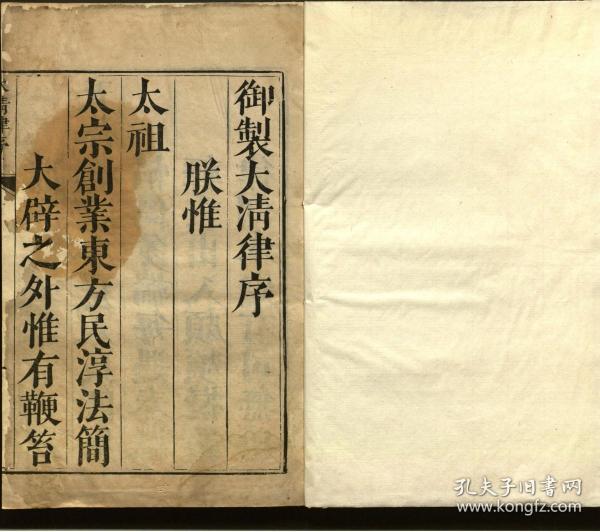 御製大淸律序
朕惟
太祖
太宗創業東方民淳法簡
大辟之外惟有鞭笞
孔夫子旧书网
www.kongfz.com